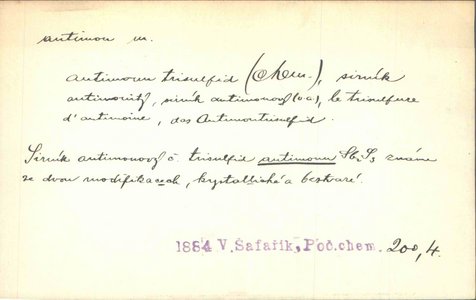 antimon m.
antimonu trisulfid (chem.), sirník
antimonitý, sirník antimonový (oa), le trisulfure
d'antimoine, das Antimontrisulfid.
Sirník antimonový č trisulfid antimonu Sb₂S₃ známe
ze dvou modifikacech, krystallické a beztvaré.
1884 V. Šafařík, Poč. chem. 200,4.